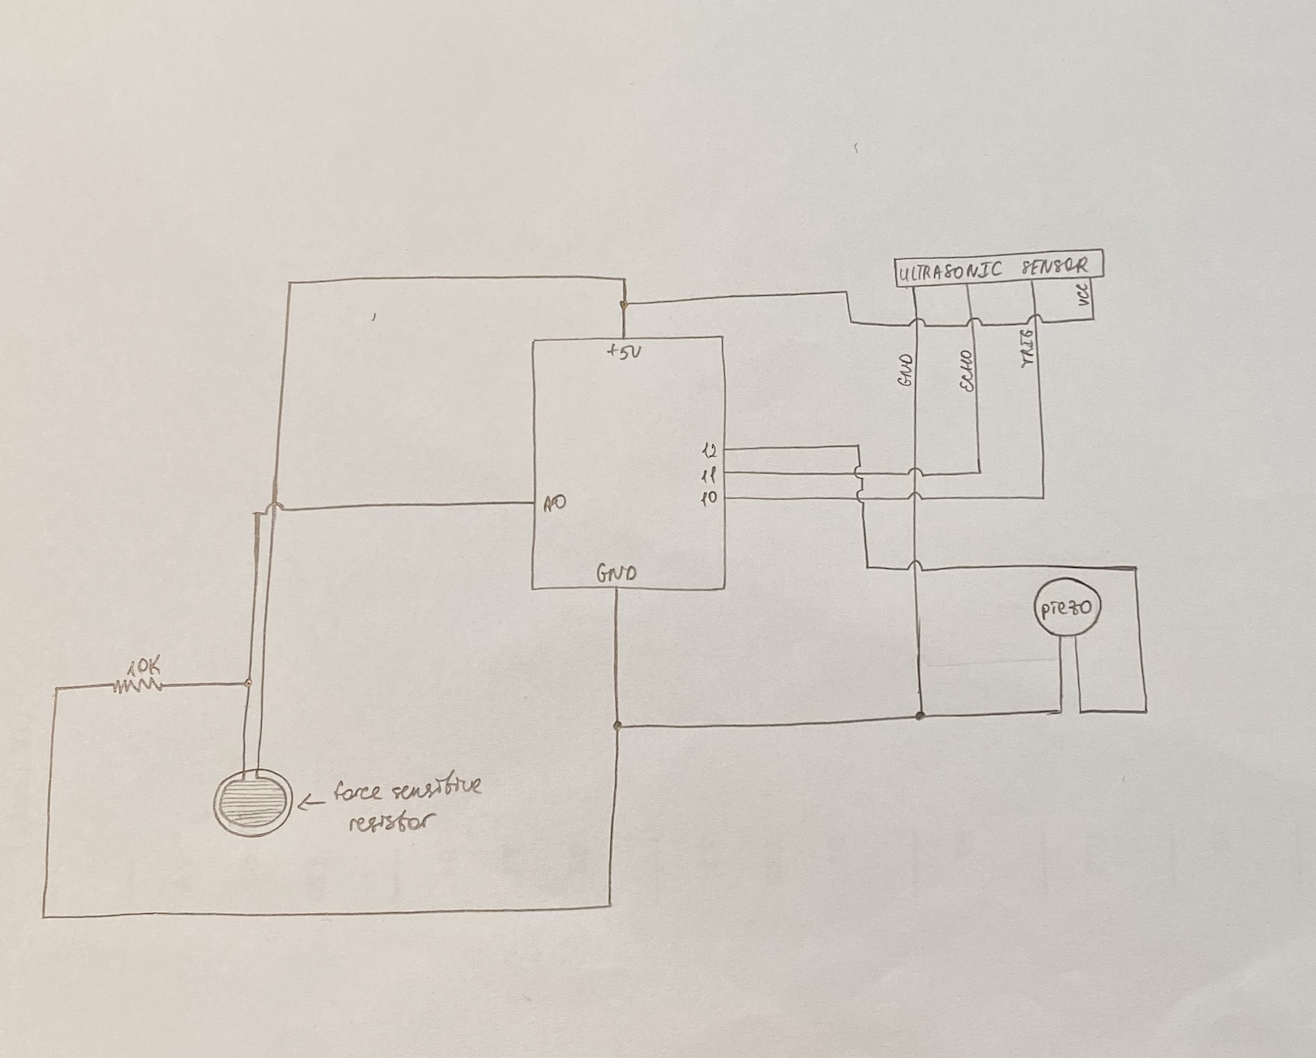 ULTRASONIC SENSOR
VCC
TRIG
+5V
GND
ECHO
12
11
10
A0
GND
piezo
10K
← force sensitive
resistor